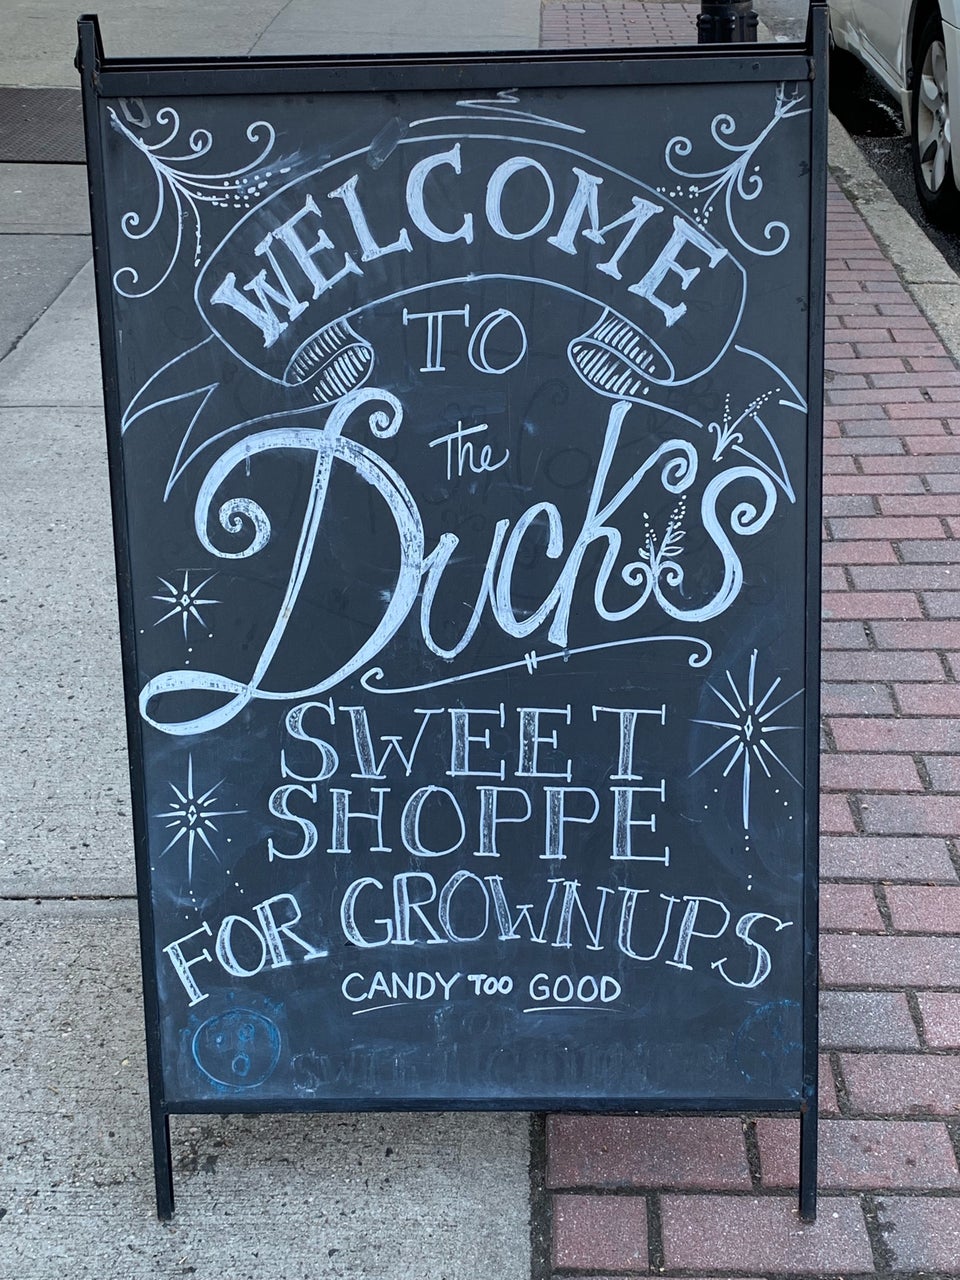 WELCOME
TO
The
Duck's
SWEET
SHOPPE
FOR GROWNUPS
CANDY TOO GOOD